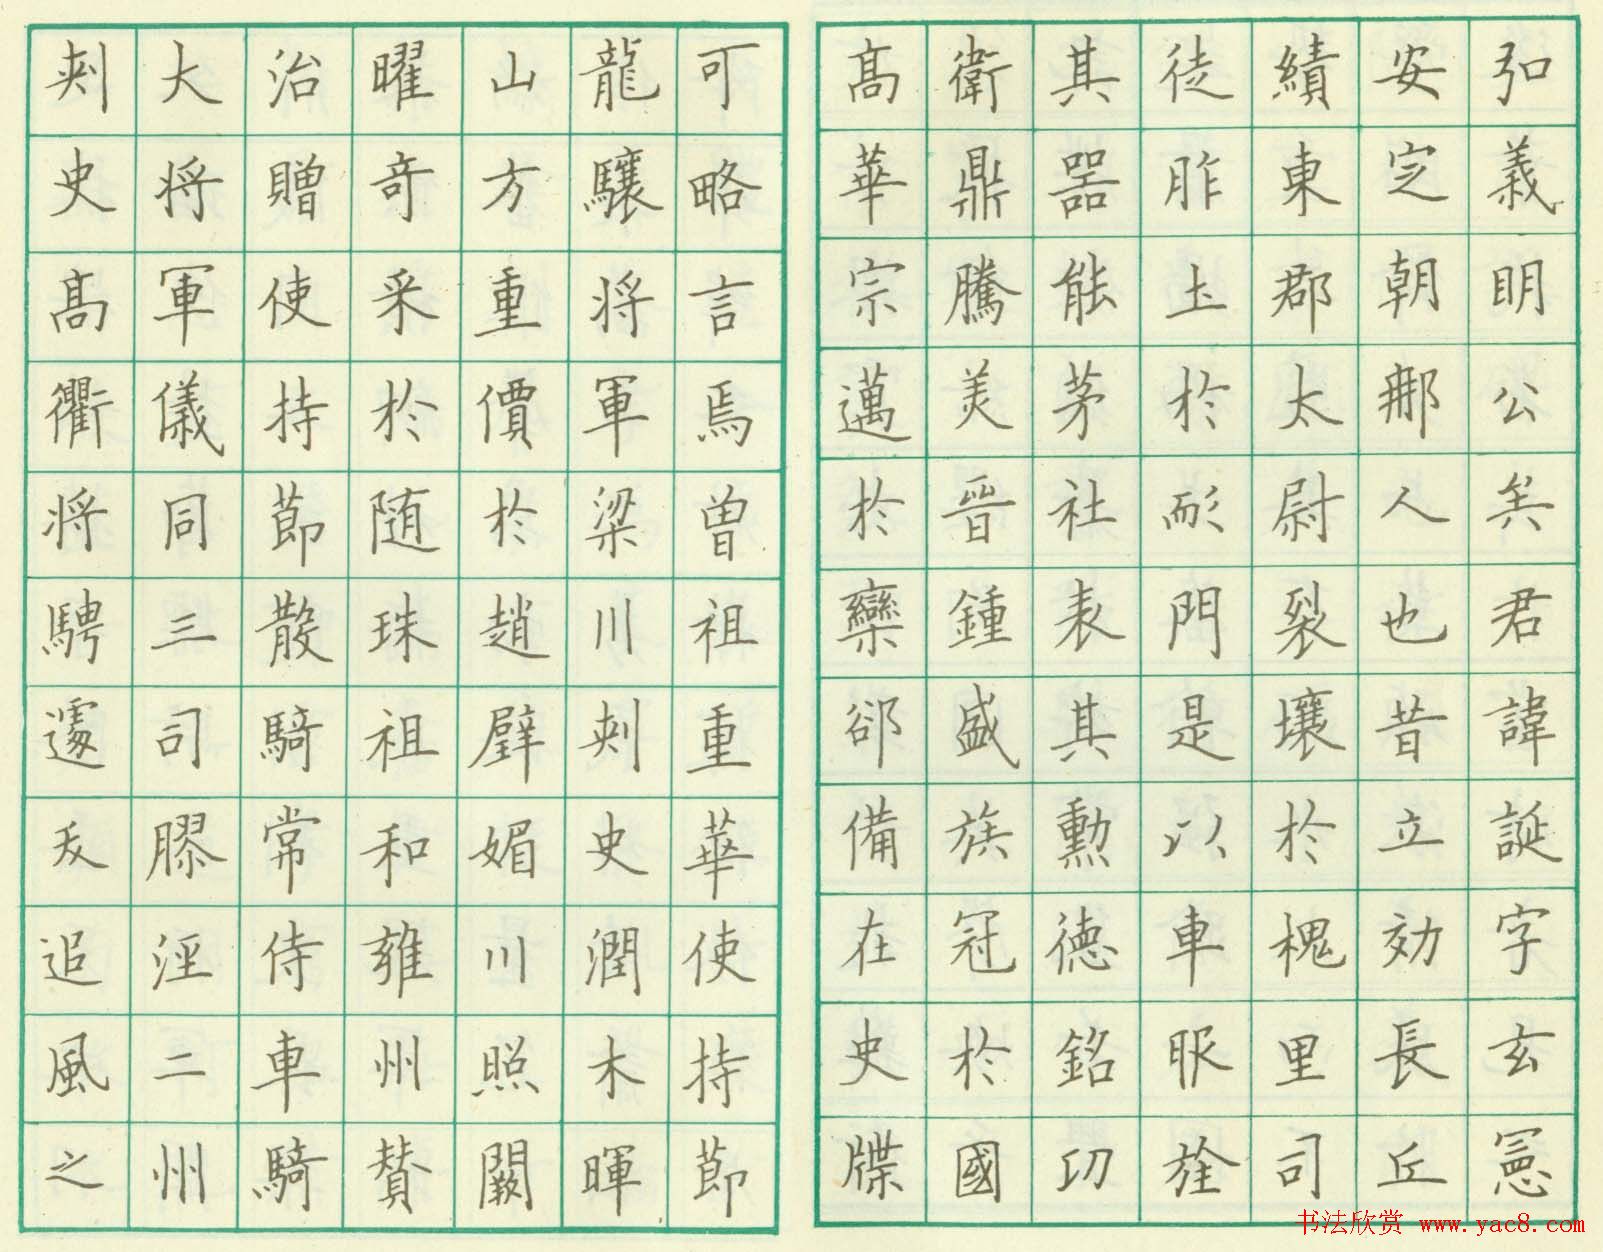 弘義明公矣君諱誕字玄憲
安定朝那人也昔立効長丘
績東郡太尉裂壤於槐里司
徒胙土於耏門是以車服旌
其器能茅社表其勳德銘功
衛鼎騰美晉鍾盛族冠於國
髙華宗邁於欒郤備在史牒
可略言焉曾祖重華使持節
龍驤将軍梁川刺史潤木暉
山方重價於趙璧媚川照闕
曜奇采於随珠祖和雍州贊
治贈使持節散騎常侍車騎
大将軍儀同三司膠涇二州
刺史髙衢将騁遽夭追風之
书法欣赏 www.yac8.com